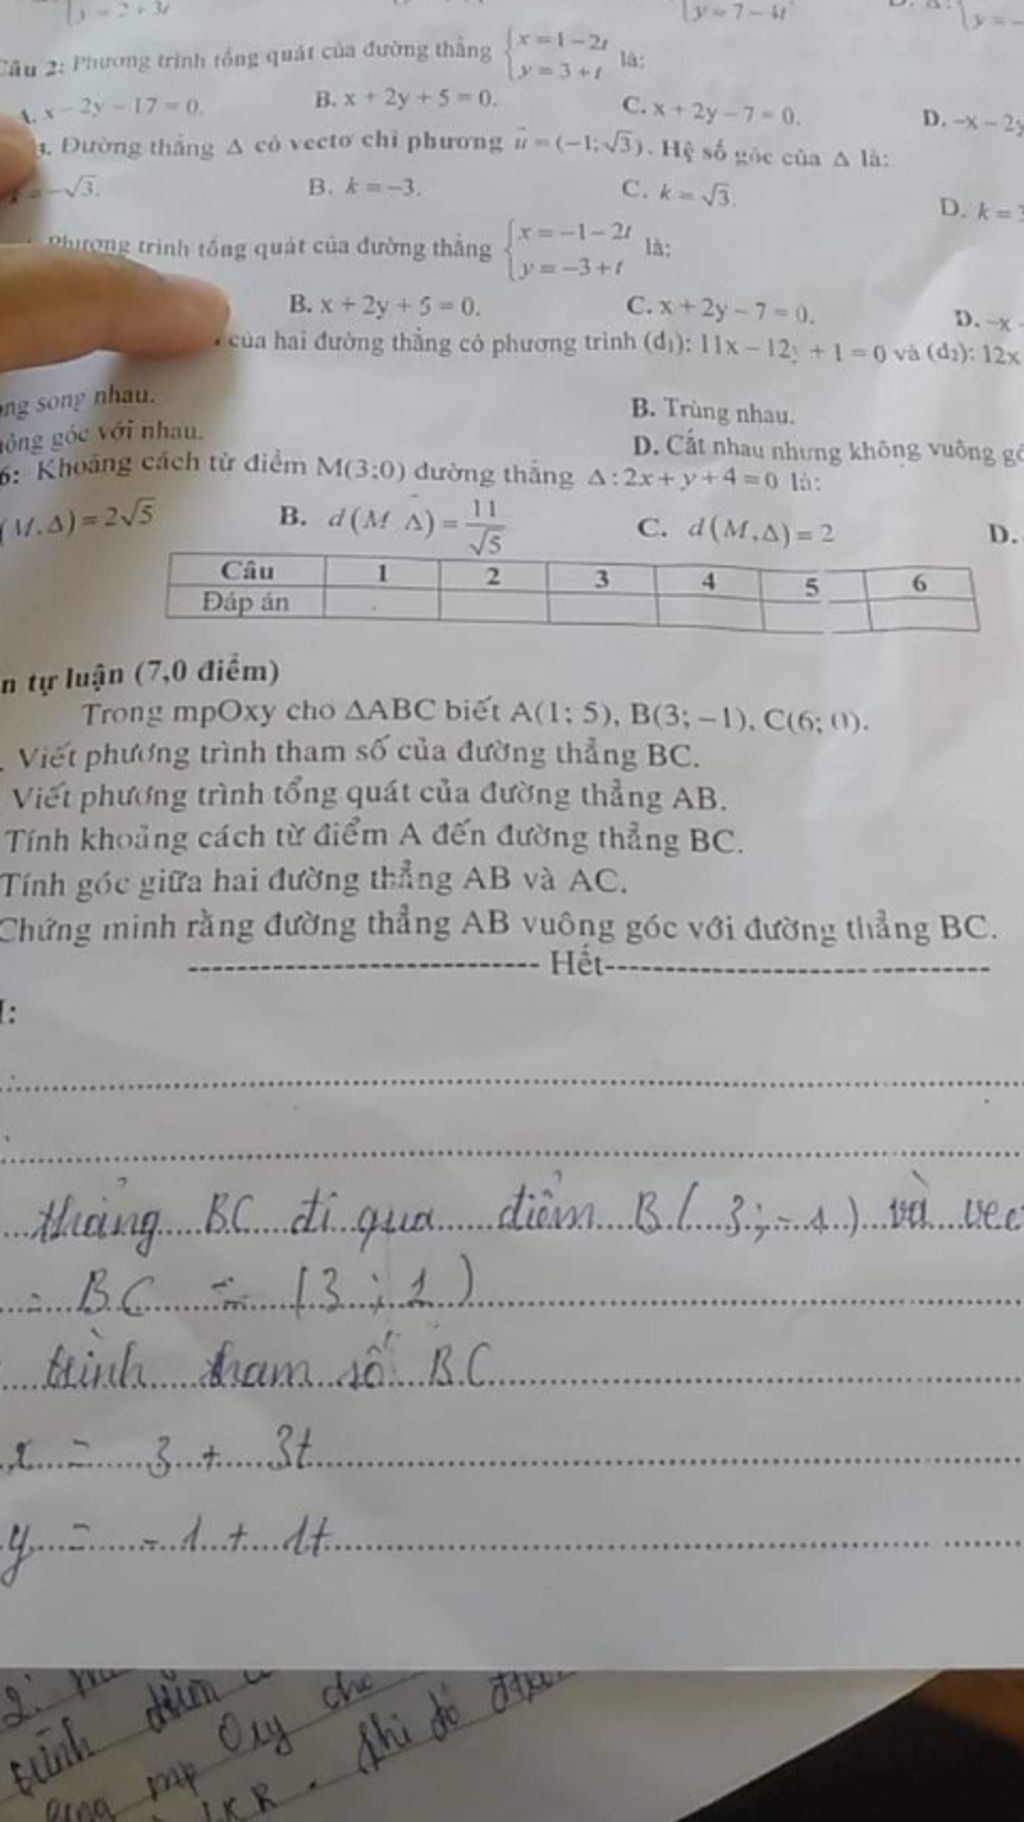 y = 2 + 3t
y = 7 - 4t
y = -
Câu 2: Phương trình tổng quát của đường thẳng { x = 1 - 2t y = 3 + t là:
A. x - 2y - 17 = 0. B. x + 2y + 5 = 0. C. x + 2y - 7 = 0. D. -x - 2y
3. Đường thẳng Δ có vectơ chỉ phương u = (-1; √3). Hệ số góc của Δ là:
= -√3. B. k = -3. C. k = √3. D. k = 3
Phương trình tổng quát của đường thẳng { x = -1 - 2t y = -3 + t là:
B. x + 2y + 5 = 0. C. x + 2y - 7 = 0. D. -x -
của hai đường thẳng có phương trình (d₁): 11x - 12y + 1 = 0 và (d₂): 12x
ng song nhau. B. Trùng nhau.
ông góc với nhau. D. Cắt nhau nhưng không vuông gó
6: Khoảng cách từ điểm M(3;0) đường thẳng Δ: 2x + y + 4 = 0 là:
(M, Δ) = 2√5 B. d(M Δ) = 11/√5 C. d(M, Δ) = 2 D.
Câu 1 2 3 4 5 6
Đáp án
n tự luận (7,0 điểm)
Trong mpOxy cho ΔABC biết A(1; 5), B(3; -1), C(6; 0).
. Viết phương trình tham số của đường thẳng BC.
Viết phương trình tổng quát của đường thẳng AB.
Tính khoảng cách từ điểm A đến đường thẳng BC.
Tính góc giữa hai đường thẳng AB và AC.
Chứng minh rằng đường thẳng AB vuông góc với đường thẳng BC.
Hết
:
thẳng BC đi qua điểm B(3; -1) và vec
= BC = (3; 1)
trình tham số BC
x = 3 + 3t
y = -1 + 1t
2.
trình
Oxy cho
mp
khi đó